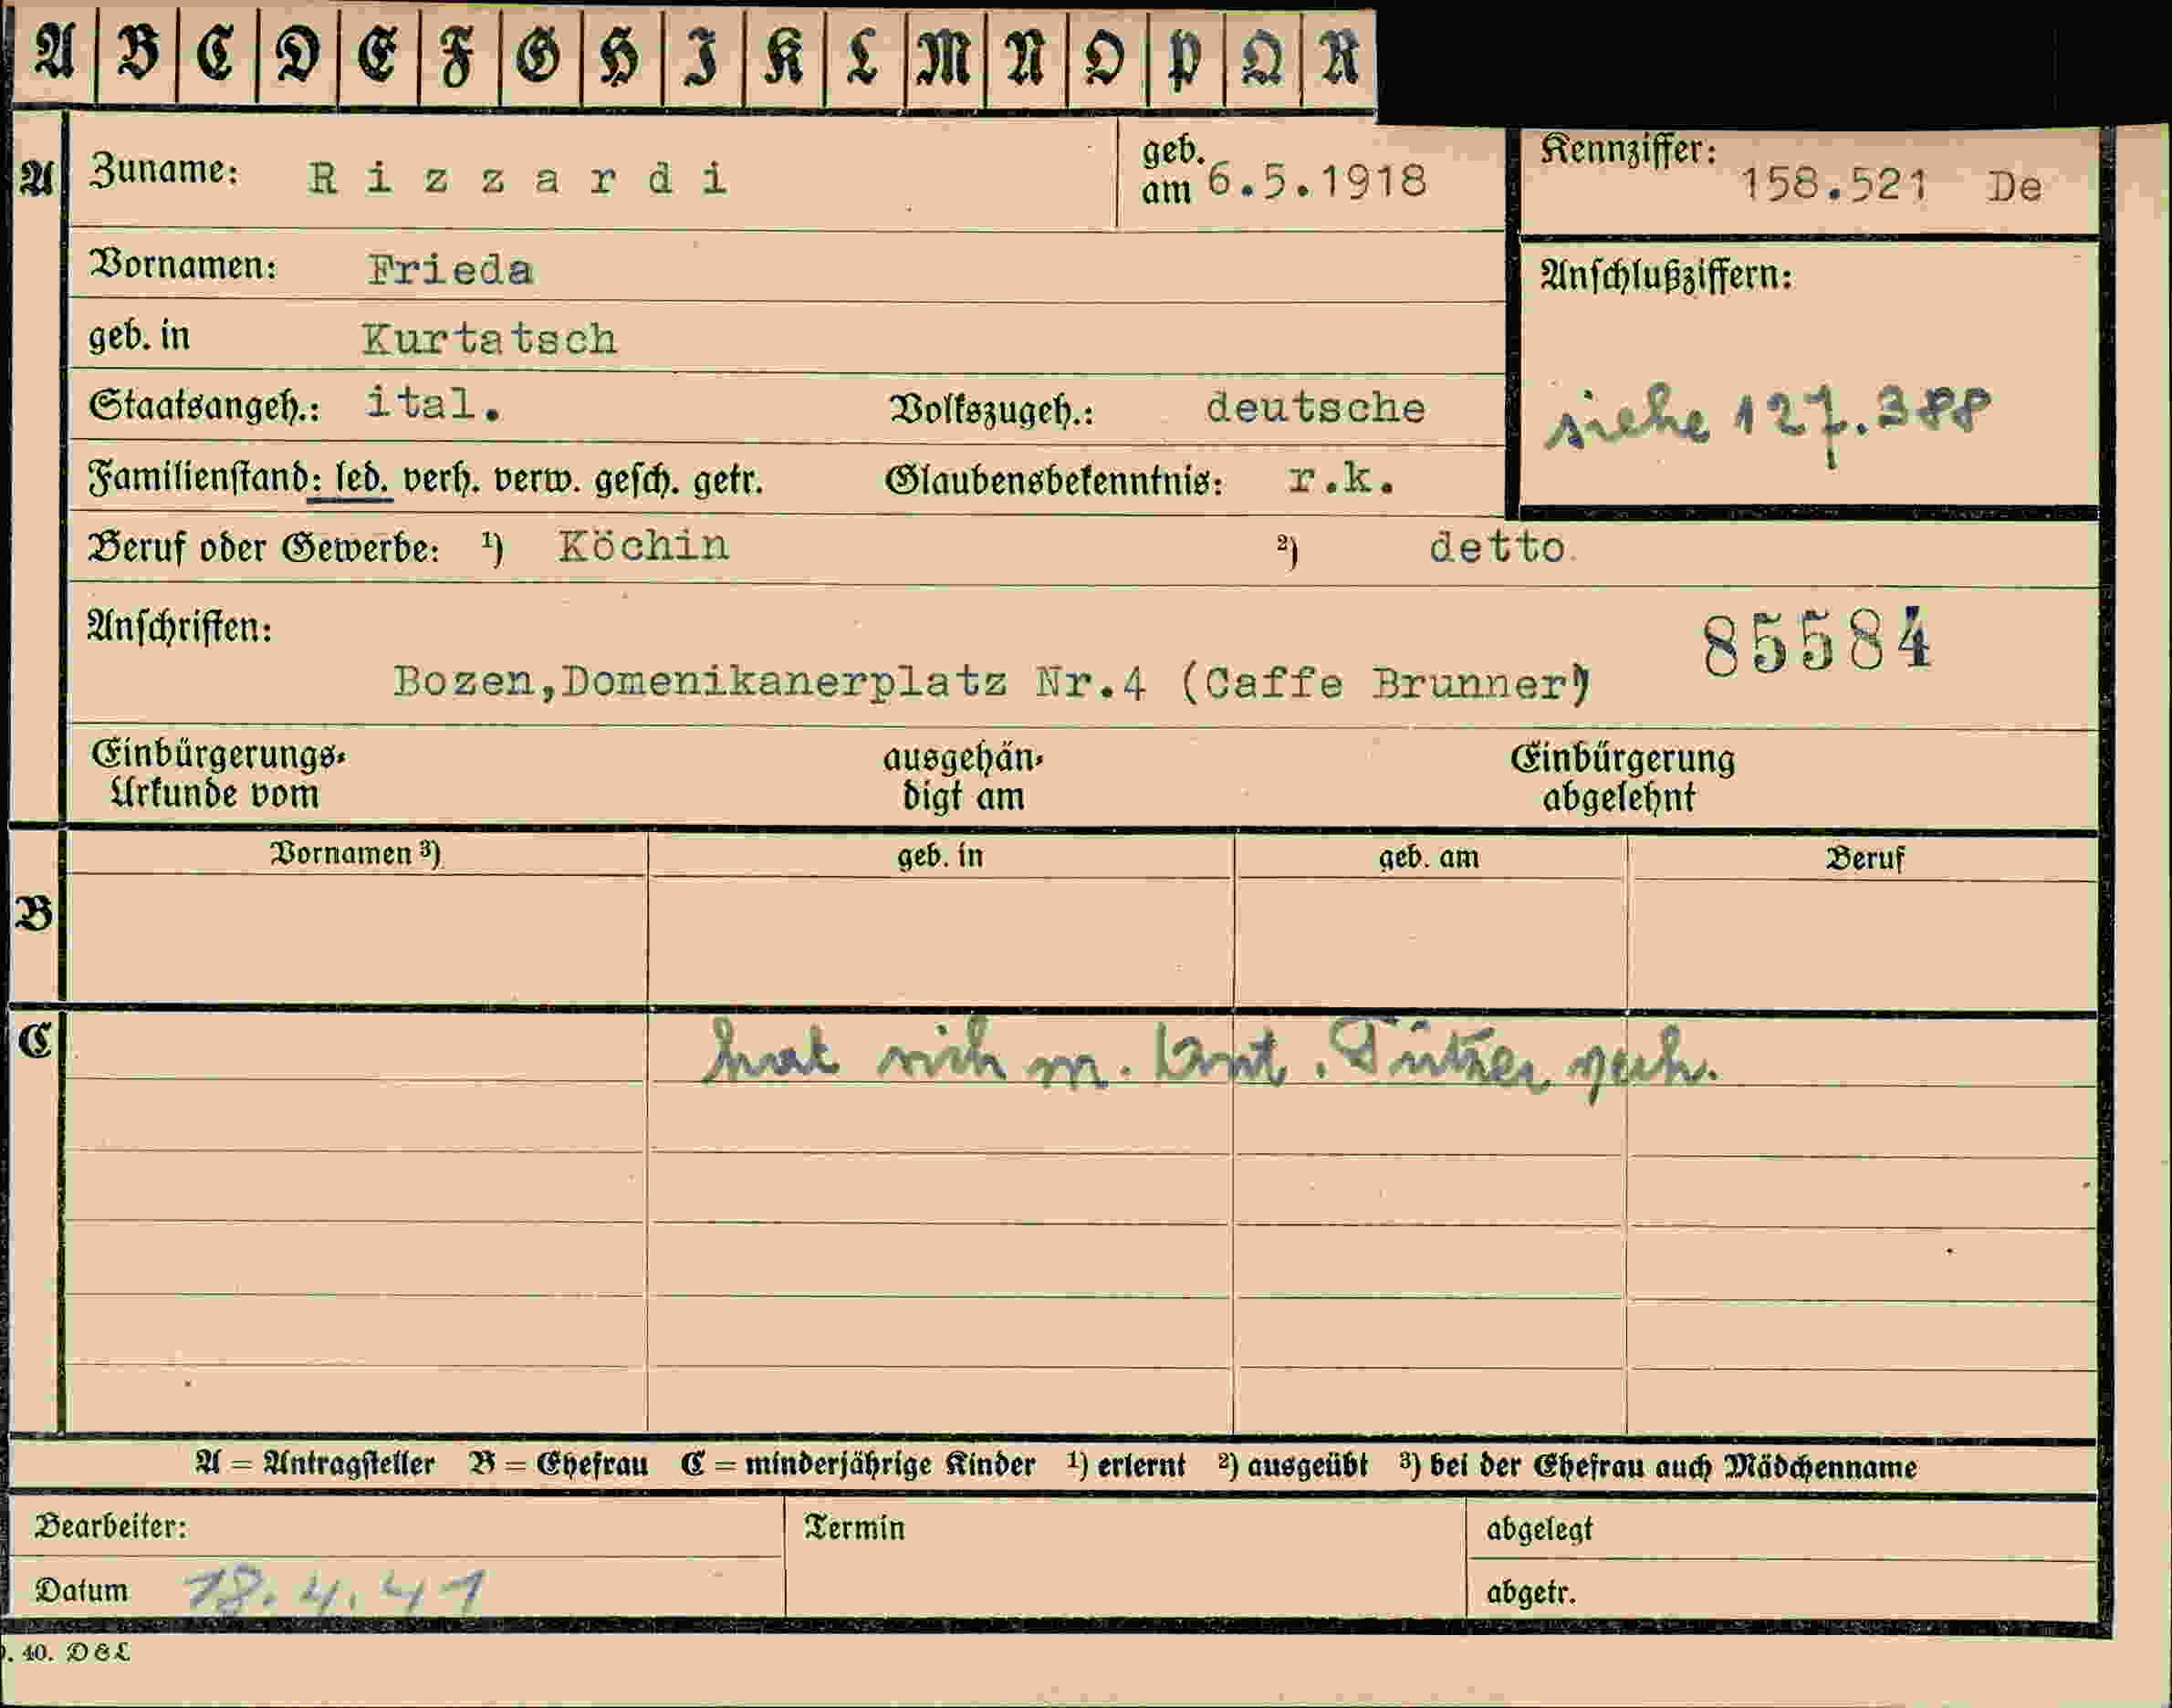 A B C D E F G H I K L M N O P Q R
A Zuname: Rizzardi geb. am 6.5.1918 Kennziffer: 158.521 De
Vornamen: Frieda
Anschlußziffern:
geb. in Kurtatsch
Staatsangeh.: ital. Volkszugeh.: deutsche
siehe 127.388
Familienstand: led. verh. verw. gesch. getr. Glaubensbekenntnis: r.k.
Beruf oder Gewerbe: ¹) Köchin ²) detto.
Anschriften: 85584
Bozen,Domenikanerplatz Nr.4 (Caffe Brunner)
Einbürgerungs- ausgehän- Einbürgerung
Urkunde vom digt am abgelehnt
Vornamen ³) geb. in geb. am Beruf
B
C hat sich m. verh.
A = Antragsteller B = Ehefrau C = minderjährige Kinder ¹) erlernt ²) ausgeübt ³) bei der Ehefrau auch Mädchenname
Bearbeiter: Termin abgelegt
Datum 18.4.41 abgetr.
. 40. D&L